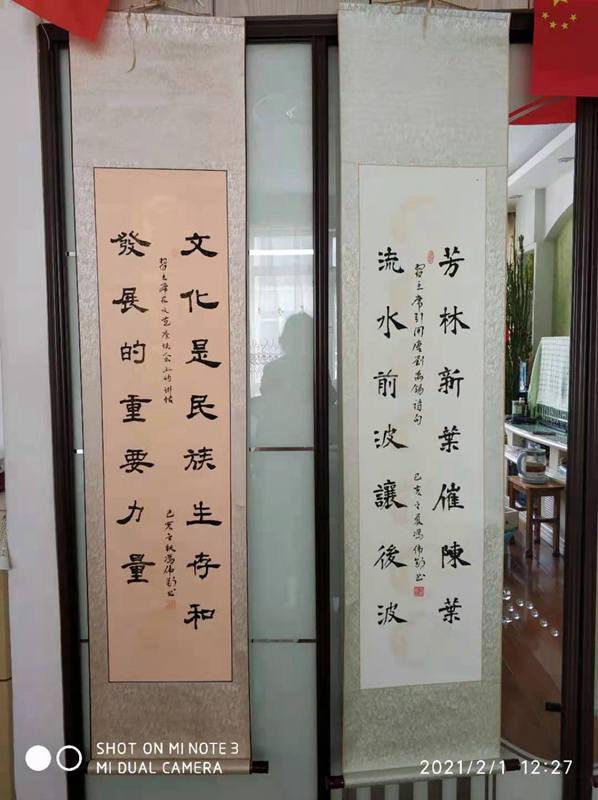 芳林新葉催陳葉
流水前波讓後波
習主席引用唐劉禹錫詩句
己亥之夏馮伟
文化是民族生存和
發展的重要力量
習主席在文艺座谈会上的讲话
己亥之秋馮伟
SHOT ON MI NOTE 3
MI DUAL CAMERA
2021/2/1 12:27